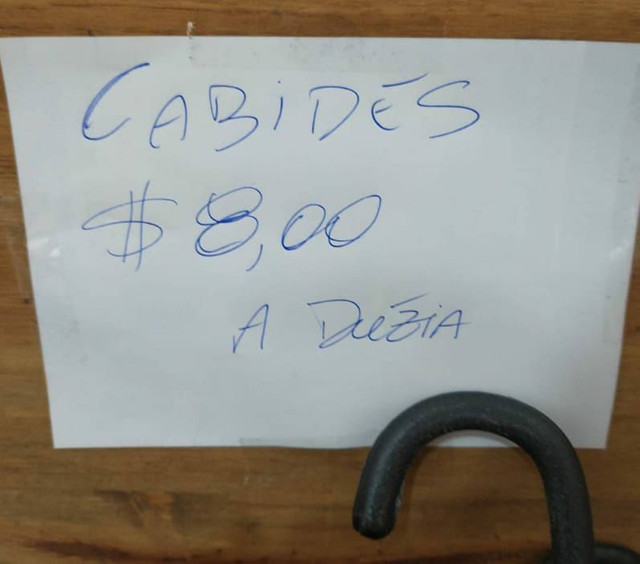 CABiDES
$ 8,00
A DUÉZiA